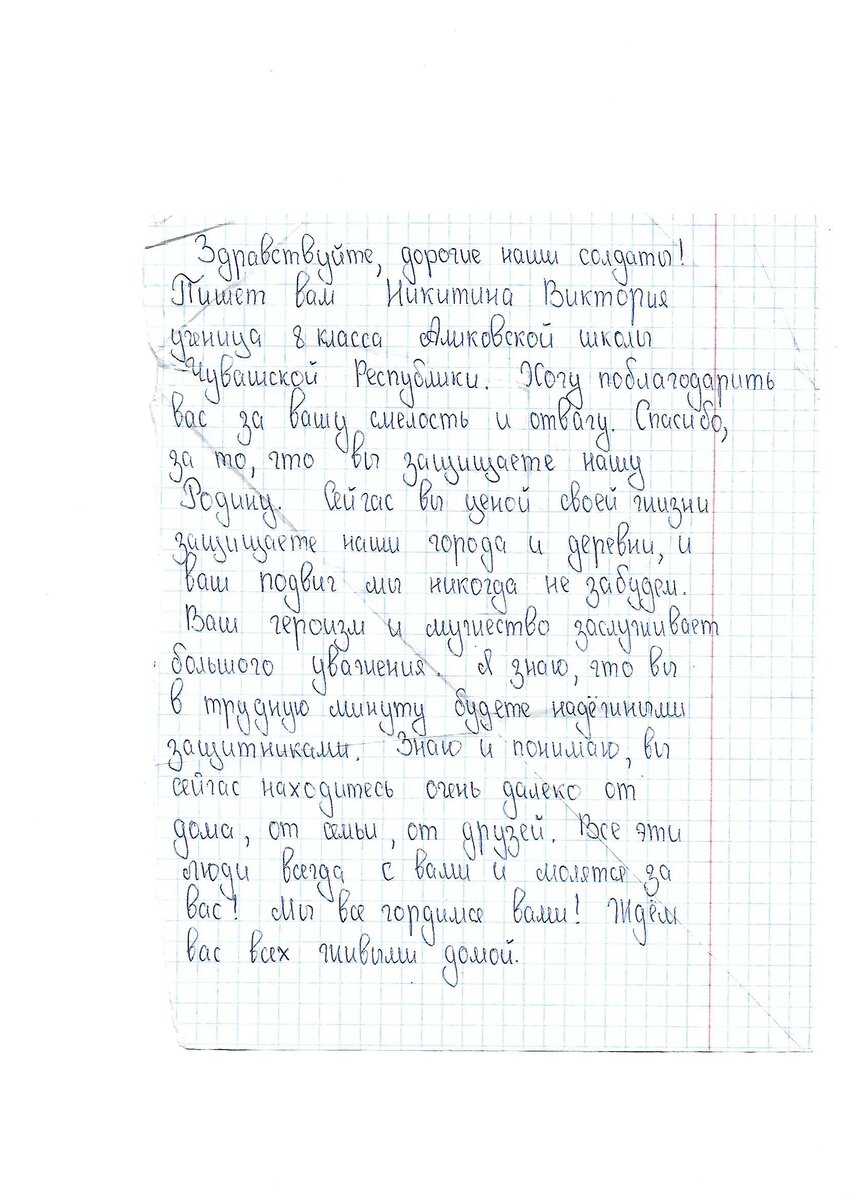 Здравствуйте, дорогие наши солдаты!
Пишет вам Никитина Виктория
ученица 8 класса Аликовской школы
Чувашской Республики. Хочу поблагодарить
вас за вашу смелость и отвагу. Спасибо,
за то, что вы защищаете нашу
Родину. Сейчас вы ценой своей жизни
защищаете наши города и деревни, и
ваш подвиг мы никогда не забудем.
Ваш героизм и мужество заслуживает
большого уважения. Я знаю, что вы
в трудную минуту будете надёжными
защитниками. Знаю и понимаю, вы
сейчас находитесь очень далеко от
дома, от семьи, от друзей. Все эти
люди всегда с вами и молятся за
вас! Мы все гордимся вами! Ждём
вас всех живыми домой.